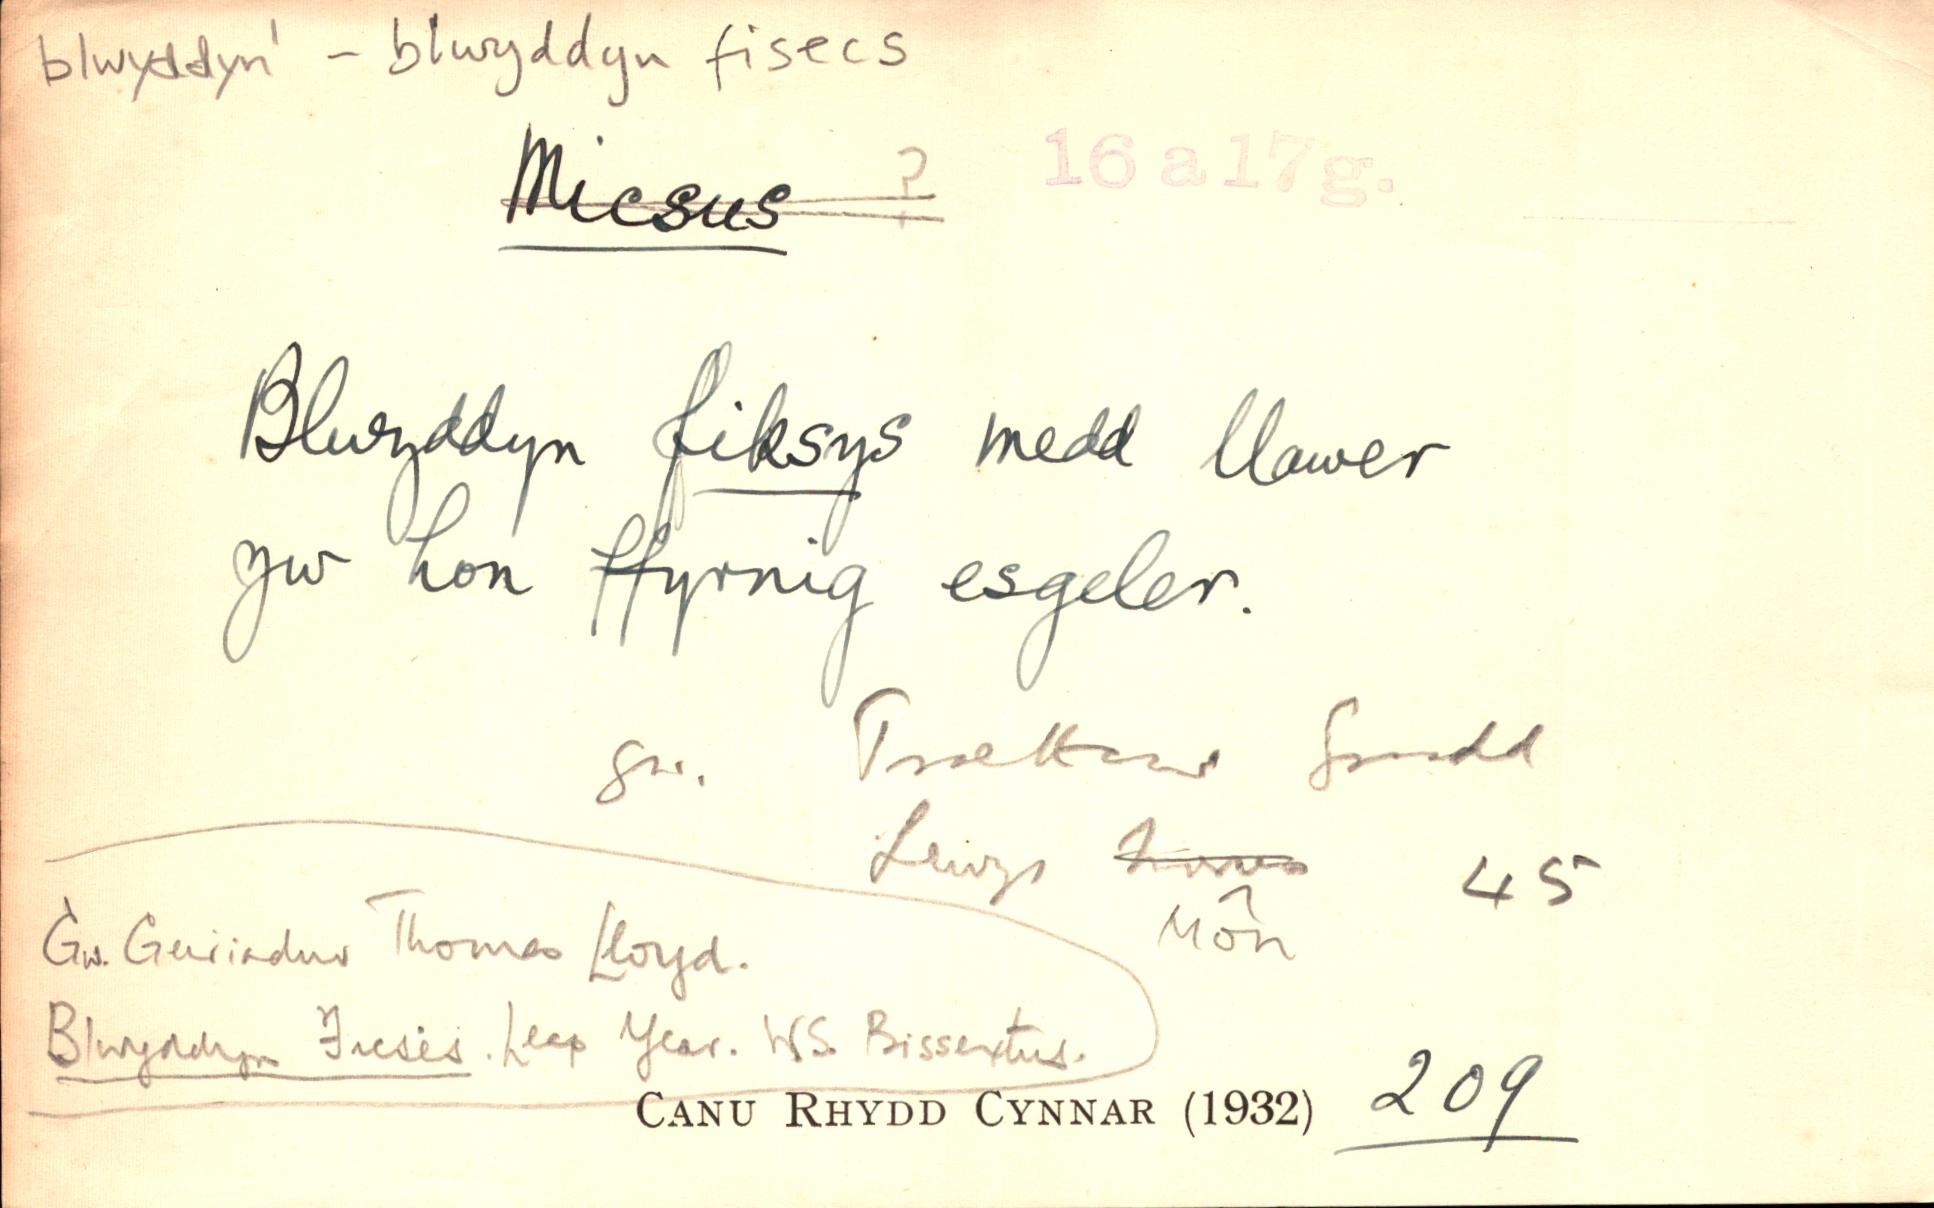 blwyddyn¹ - blwyddyn fisecs
Micsus ? 16 a 17g.
Blwyddyn fiksys medd llawer
yw hon ffyrnig esgeler.
gw. Gradd
Lewys Môn 45
Gw. Geiriadur Thomas Lloyd.
Blwyddyn Ficsis. Leap Year. WS. Bissextus.
CANU RHYDD CYNNAR (1932) 209